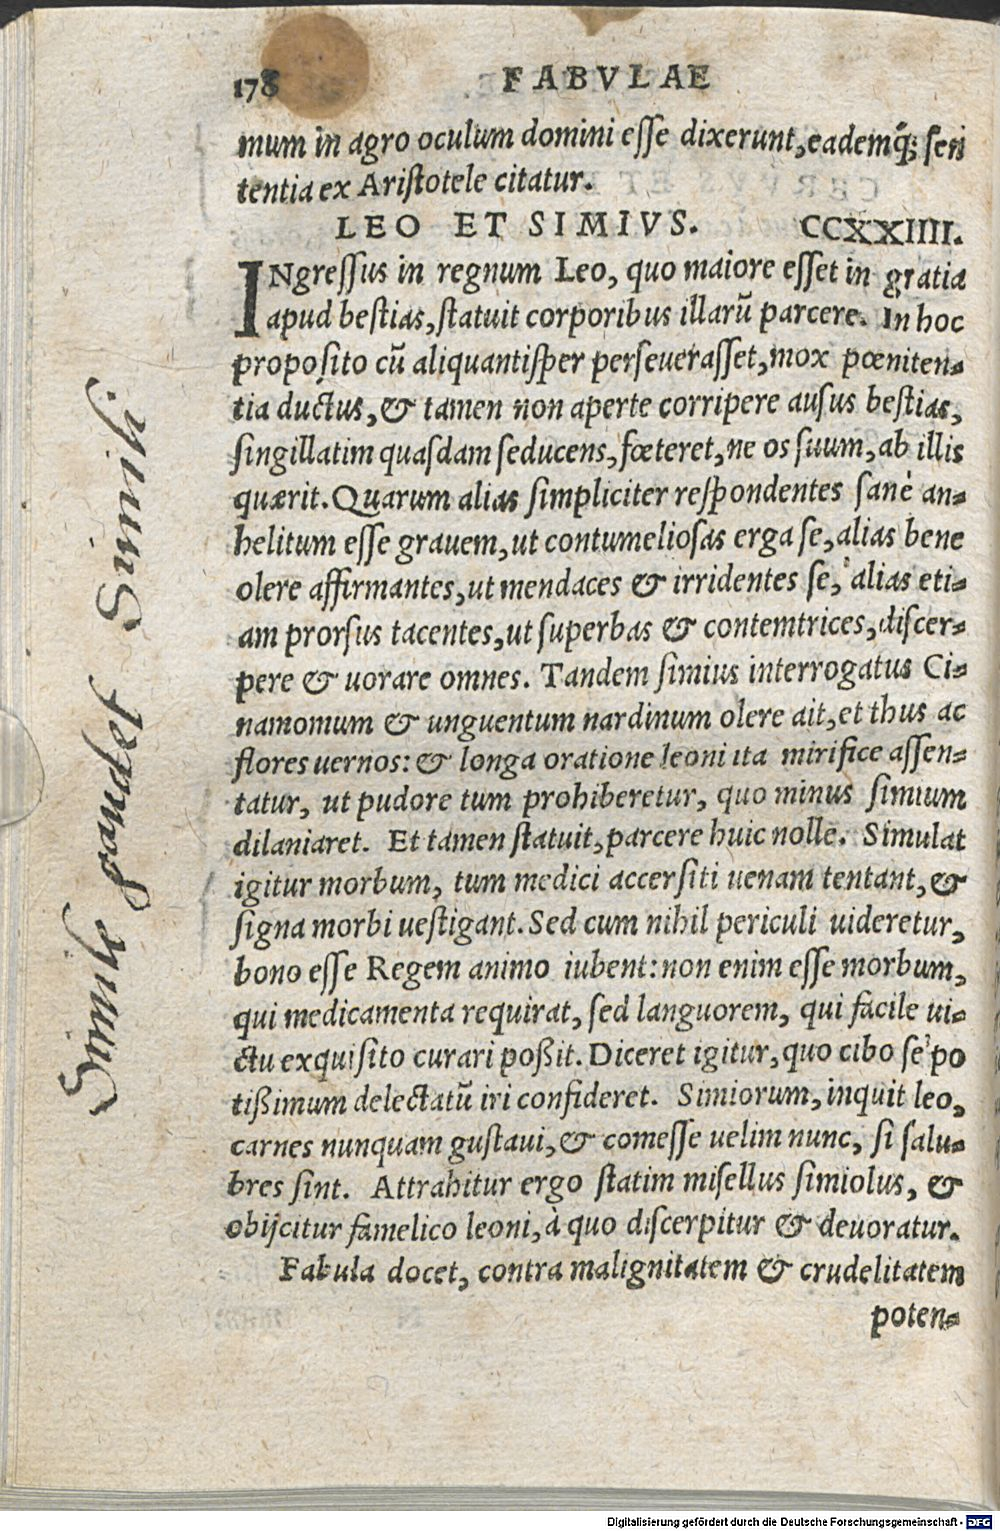 178 FABVLAE
mum in agro oculum domini esse dixerunt, eademq́; sen
tentia ex Aristotele citatur.
LEO ET SIMIVS. CCXXIIII.
INgressus in regnum Leo, quo maiore esset in gratia
apud bestias, statuit corporibus illarũ parcere. In hoc
proposito cũ aliquantisper perseuerasset, mox pœniten-
tia ductus, & tamen non aperte corripere ausus bestias,
singillatim quasdam seducens, fœteret, ne os suum, ab illis
quærit. Quarum alias simpliciter respondentes sanè an-
helitum esse grauem, ut contumeliosas erga se, alias bene
olere affirmantes, ut mendaces & irridentes se, alias eti-
am prorsus tacentes, ut superbas & contemtrices, discer-
pere & uorare omnes. Tandem simius interrogatus Ci-
namomum & unguentum nardinum olere ait, et thus ac
flores uernos: & longa oratione leoni ita mirifice assen-
tatur, ut pudore tum prohiberetur, quo minus simium
dilaniaret. Et tamen statuit, parcere huic nolle. Simulat
igitur morbum, tum medici accersiti uenam tentant, &
signa morbi uestigant. Sed cum nihil periculi uideretur,
bono esse Regem animo iubent: non enim esse morbum,
qui medicamenta requirat, sed languorem, qui facile ui-
ctu exquisito curari poßit. Diceret igitur, quo cibo se po
tißimum delectatũ iri confideret. Simiorum, inquit leo,
carnes nunquam gustaui, & comesse uelim nunc, si salu-
bres sint. Attrahitur ergo statim misellus simiolus, &
obijcitur famelico leoni, à quo discerpitur & deuoratur.
Fabula docet, contra malignitatem & crudelitatem
poten-
Simile gaudet Simili
Digitalisierung gefördert durch die Deutsche Forschungsgemeinschaft - DFG